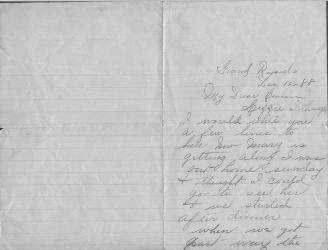 Grand Rapids
Dec 10 - 88
My Dear Cousin
Lizzie I thought
I would write you
a few lines to
see how Mary is
getting along I was
out home sunday
& thought I could
go to see her
& we started
after dinner
when we got
part way the